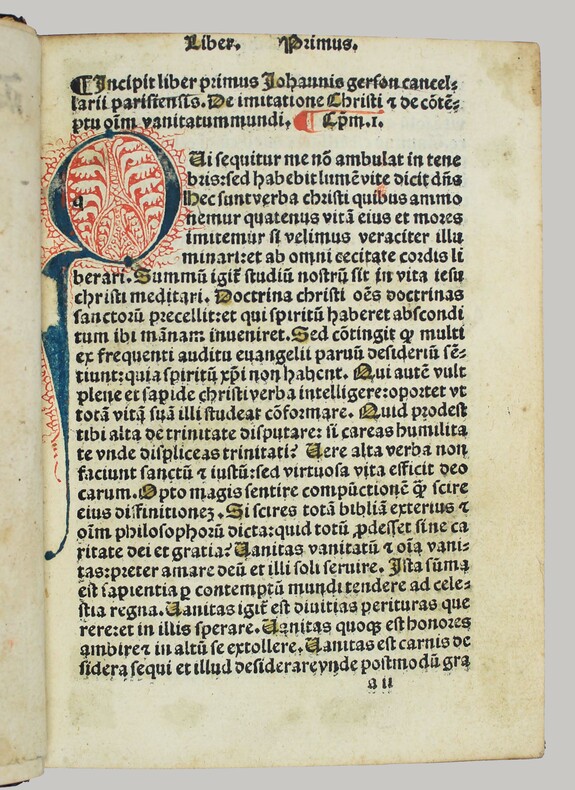 Liber. Primus.
¶Incipit liber primus Johannis gerson cancel⸗
larii parisiensis. De imitatione Christi ⁊ de cōtē⸗
ptu oīm vanitatum mundi. ¶ Cpm̄.1.
QUi sequitur me nō ambulat in tene
bris:sed habebit lumē vite dicit dn̄s
Hec sunt verba christi quibus ammo
nemur quatenus vitā eius et mores
imitemur si velimus veraciter illu
minari:et ab omni cecitate cordis li
berari. Summū igit̄ studiū nostrū sit in vita iesu
christi meditari. Doctrina christi oēs doctrinas
sanctorū precellit:et qui spiritū haberet abscondi
tum ibi mānam inueniret. Sed cōtingit ꝙ multi
ex frequenti auditu euangelii paruū desideriū sē⸗
tiunt:quia spiritū xp̄i non habent. Qui autē vult
plene et sapide christi verba intelligere:oportet vt
totā vitā suā illi studeat cōformare. Quid prodest
tibi alta de trinitate disputare: si careas humilita
te vnde displiceas trinitati? Uere alta verba non
faciunt sanctū ⁊ iustū:sed virtuosa vita efficit deo
carum. Opto magis sentire compūctionē ꝙ̄ scire
eius diffinitionez. Si scires totā bibliā exterius ⁊
oīm philosophorū dicta:quid totū ꝓdesset sine ca
ritate dei et gratia? Uanitas vanitatū ⁊ oīa vani⸗
tas:preter amare deū et illi soli seruire. Ista sūma
est sapientia ꝑ contemptū mundi tendere ad cele⸗
stia regna. Uanitas igit̄ est diuitias perituras que
rere:et in illis sperare. Uanitas quoqꝫ est honores
ambire ⁊ in altū se extollere. Uanitas est carnis de
sidera sequi et illud desiderare vnde postmodū gra
a ii